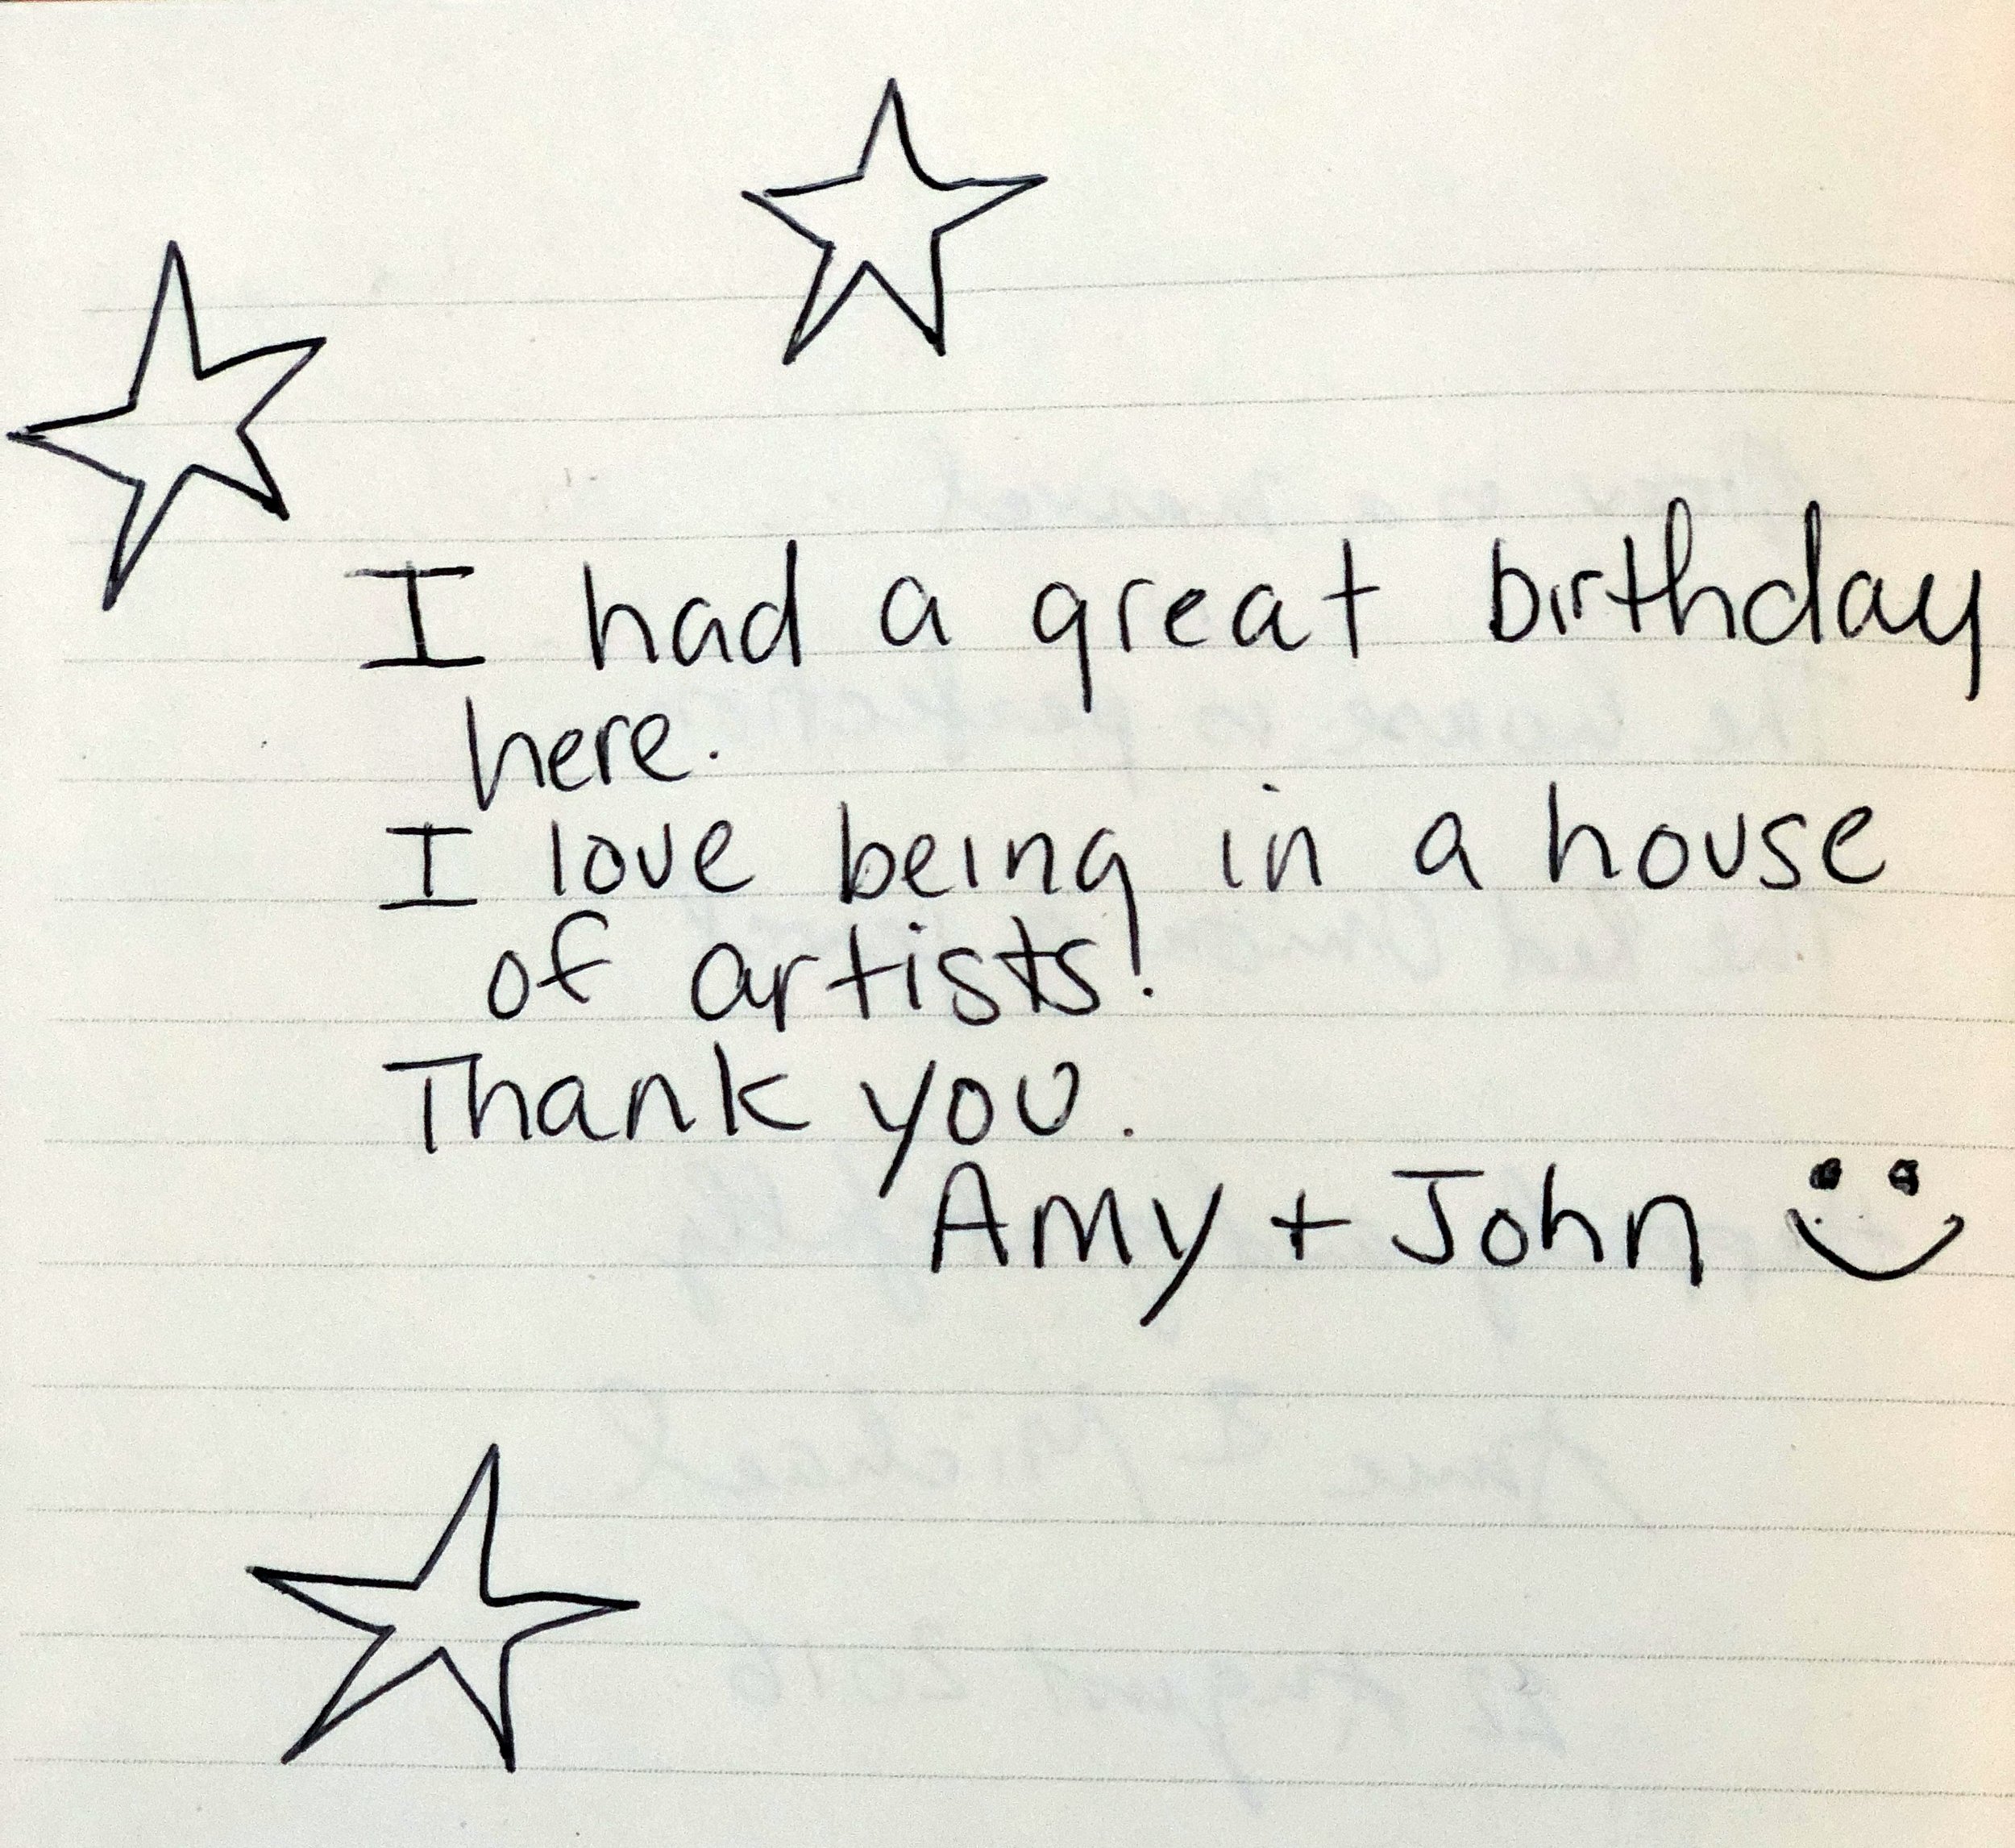 I had a great birthday
here.
I love being in a house
of artists!
Thank you.
Amy + John